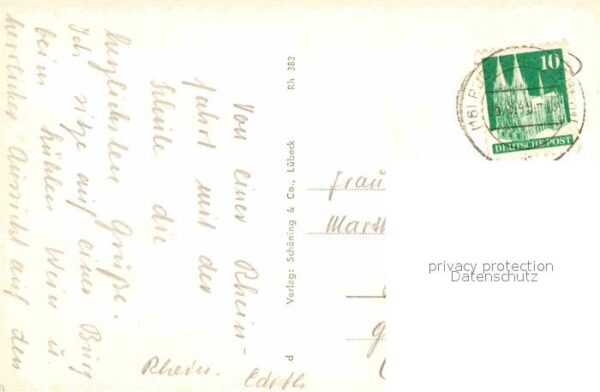 Von einer Rhein-
fahrt mit der
Schule die
herzlichsten Grüße.
Ich sitze auf einer Burg
beim kühlen Wein u.
herrlicher Aussicht auf den
Rhein. Edith
d Verlag: Schöning & Co., Lübeck Rh 382
10
DEUTSCHE POST
(16)
Frau
Marth
privacy protection
Datenschutz